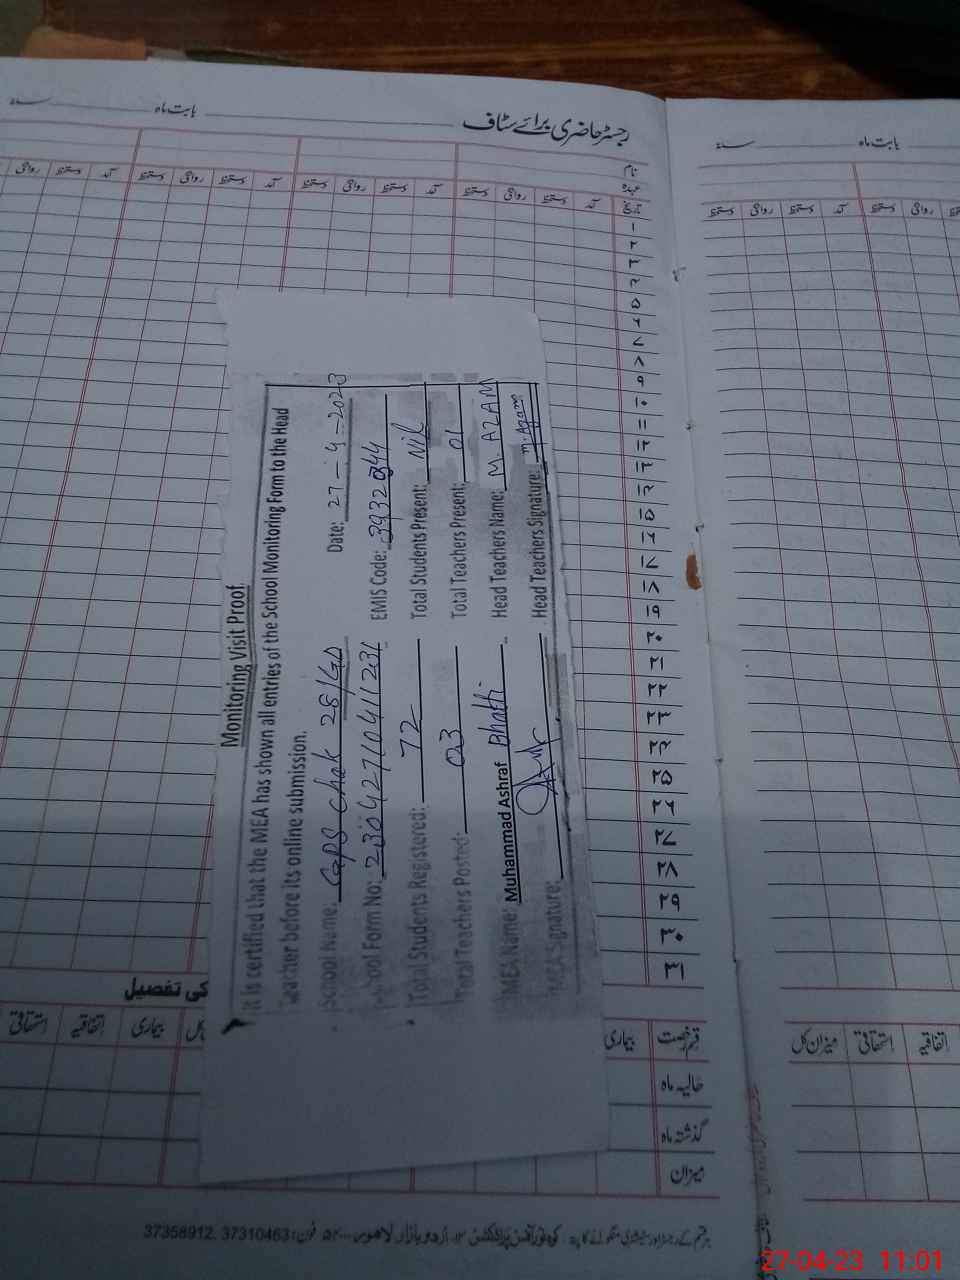 رجسٹر حاضری برائے سٹاف
بابت ماہ
سنہ
بابت ماہ
سنہ
نام
عہدہ
تاریخ
آمد
دستخط
روانگی
دستخط
آمد
دستخط
روانگی
دستخط
آمد
دستخط
روانگی
دستخط
آمد
دستخط
روانگی
دستخط
آمد
دستخط
روانگی
دستخط
۱
۲
۳
۴
۵
۶
۷
۸
۹
۱۰
۱۱
۱۲
۱۳
۱۴
۱۵
۱۶
۱۷
۱۸
۱۹
۲۰
۲۱
۲۲
۲۳
۲۴
۲۵
۲۶
۲۷
۲۸
۲۹
۳۰
۳۱
Monitoring Visit Proof
It is certified that the MEA has shown all entries of the School Monitoring Form to the Head
Teacher before its online submission.
School Name: GPS Chak 28/GD Date: 27-4-2023
School Form No: 2304271041123 EMIS Code:
Total Students Registered: 72 Total Students Present: Nil
Total Teachers Posted: 03 Total Teachers Present: 01
MEA Name: Muhammad Ashraf Bhatti Head Teachers Name: M. AZAM
MEA Signature: Head Teachers Signature: M. Azam
کی تفصیل
قسم رخصت
بیماری
بیماری
اتفاقیہ
استحقاقی
میزان کل
استحقاقی
اتفاقیہ
حالیہ ماہ
گذشتہ ماہ
میزان
اردو بازار لاہور
فون: 37310463, 37358912
27-04-23 11:01